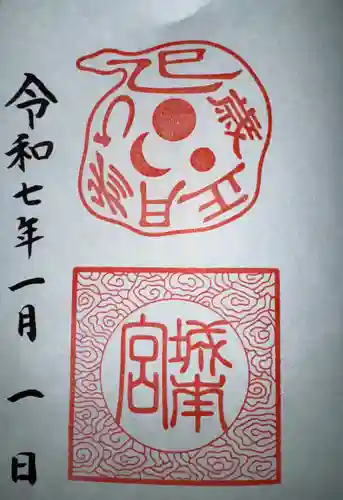 巳歳正月参り
城南宮
令和七年一月一日